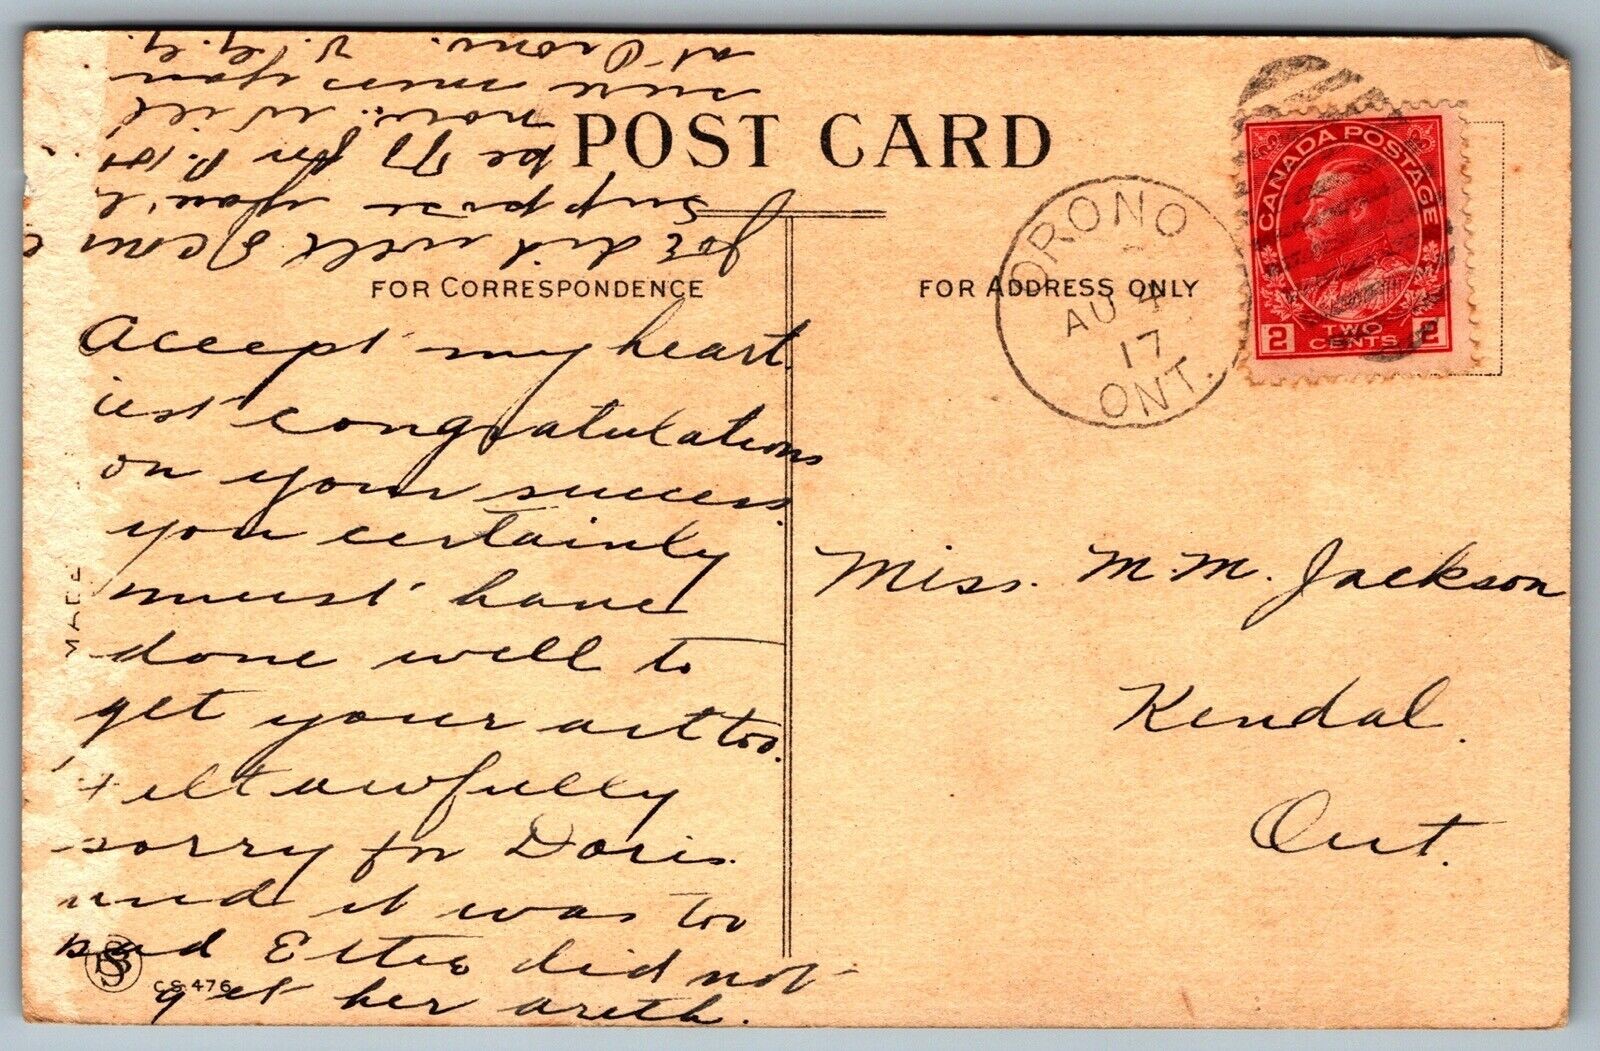 POST CARD
FOR CORRESPONDENCE
FOR ADDRESS ONLY
CANADA POSTAGE
2 TWO CENTS 2
ORONO
AU 4
17
ONT.
Accept my heart
iest congratulations
on your success.
you certainly
must have
done well to
get your art too.
I felt awfully
sorry for Doris.
and it was too
bad Elsie did not
get her arith.
Joe did well
suppose you'll
be
now. will
sure miss you
at Orono.
Miss. M. M. Jackson
Kendal.
Ont.
MADE
CS 476